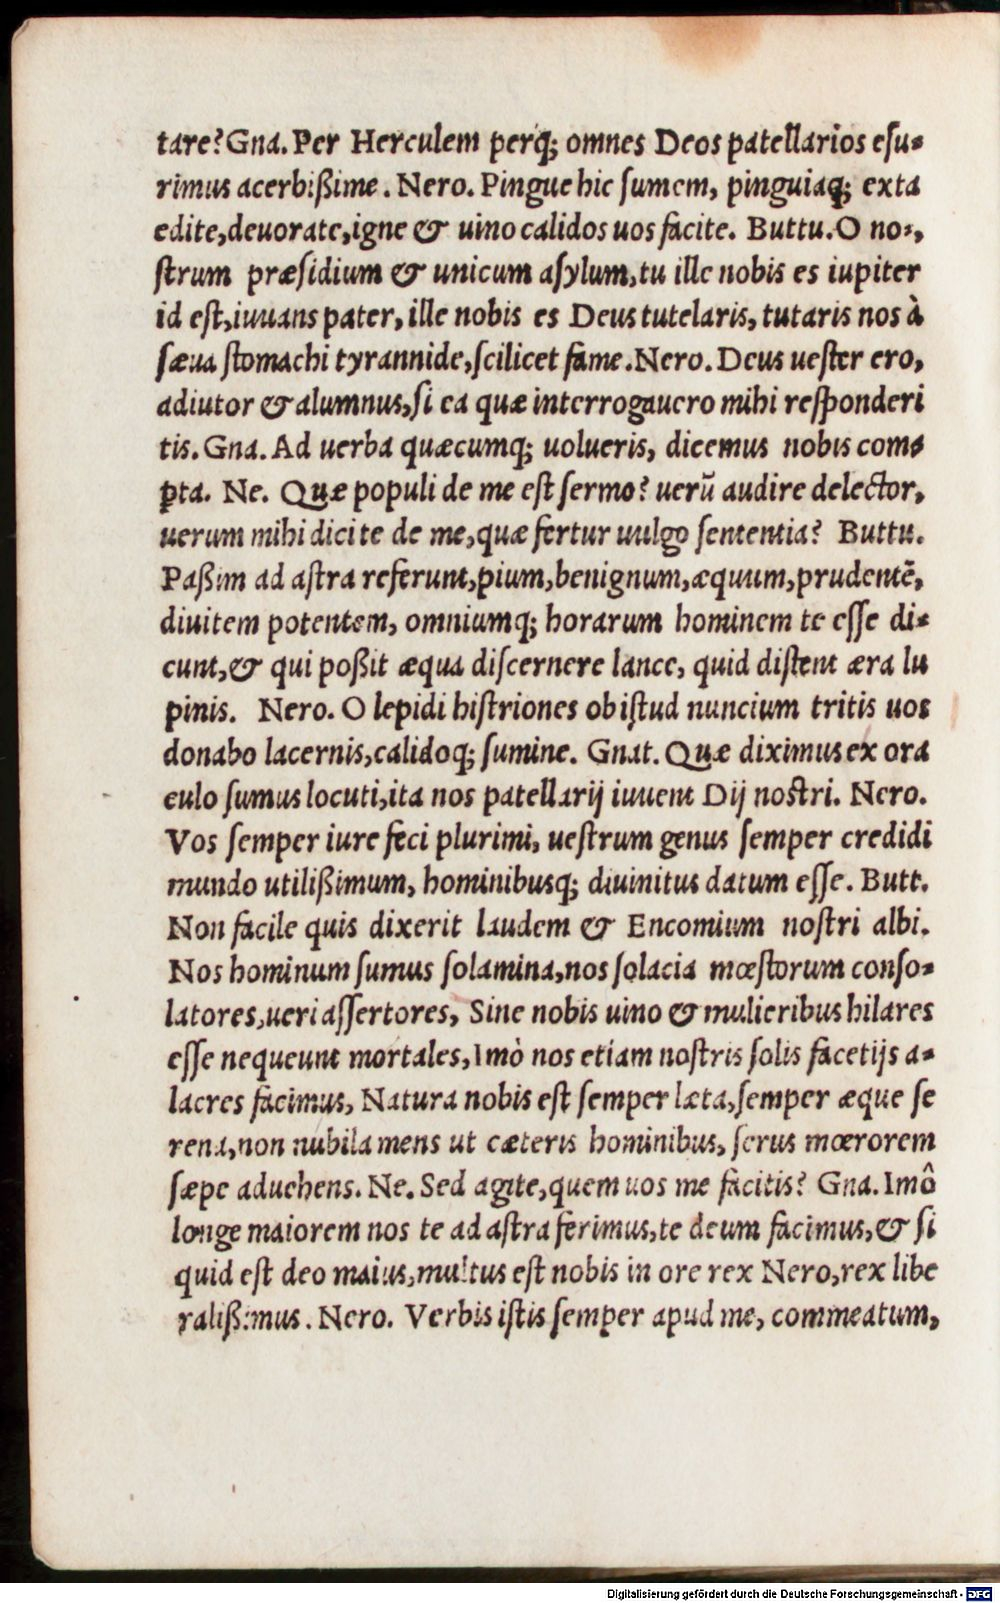 tare? Gna. Per Herculem perq; omnes Deos patellarios esu-
rimus acerbißime. Nero. Pingue hic sumem, pinguiaq; exta
edite, deuorate, igne & uino calidos uos facite. Buttu. O no-,
strum præsidium & unicum asylum, tu ille nobis es iupiter
id est, iuuans pater, ille nobis es Deus tutelaris, tutaris nos à
sæua stomachi tyrannide, scilicet fame. Nero. Deus uester ero,
adiutor & alumnus, si ea quæ interrogauero mihi responderi
tis. Gna. Ad uerba quæcumq; uolueris, dicemus nobis com-
pta. Ne. Quæ populi de me est sermo? uerũ audire delector,
uerum mihi dicite de me, quæ fertur uulgo sententia? Buttu.
Paßim ad astra referunt, pium, benignum, æquum, prudentẽ,
diuitem potentem, omniumq; horarum hominem te esse di-
cunt, & qui poßit æqua discernere lance, quid distent æra lu
pinis. Nero. O lepidi histriones ob istud nuncium tritis uos
donabo lacernis, calidoq; sumine. Gnat. Quæ diximus ex ora
culo sumus locuti, ita nos patellarij iuuent Dij nostri. Nero.
Vos semper iure feci plurimi, uestrum genus semper credidi
mundo utilißimum, hominibusq; diuinitus datum esse. Butt.
Non facile quis dixerit laudem & Encomium nostri albi.
Nos hominum sumus solamina, nos solacia mœstorum conso-
latores, ueri assertores, Sine nobis uino & mulieribus hilares
esse nequeunt mortales, Imò nos etiam nostris solis facetijs a-
lacres facimus, Natura nobis est semper læta, semper æque se
rena, non nubila mens ut cæteris hominibus, serus mœrorem
sæpe aduehens. Ne. Sed agite, quem uos me facitis? Gna. Imô
longe maiorem nos te ad astra ferimus, te deum facimus, & si
quid est deo maius, multus est nobis in ore rex Nero, rex libe
ralißimus. Nero. Verbis istis semper apud me, commeatum,
Digitalisierung gefördert durch die Deutsche Forschungsgemeinschaft - DFG